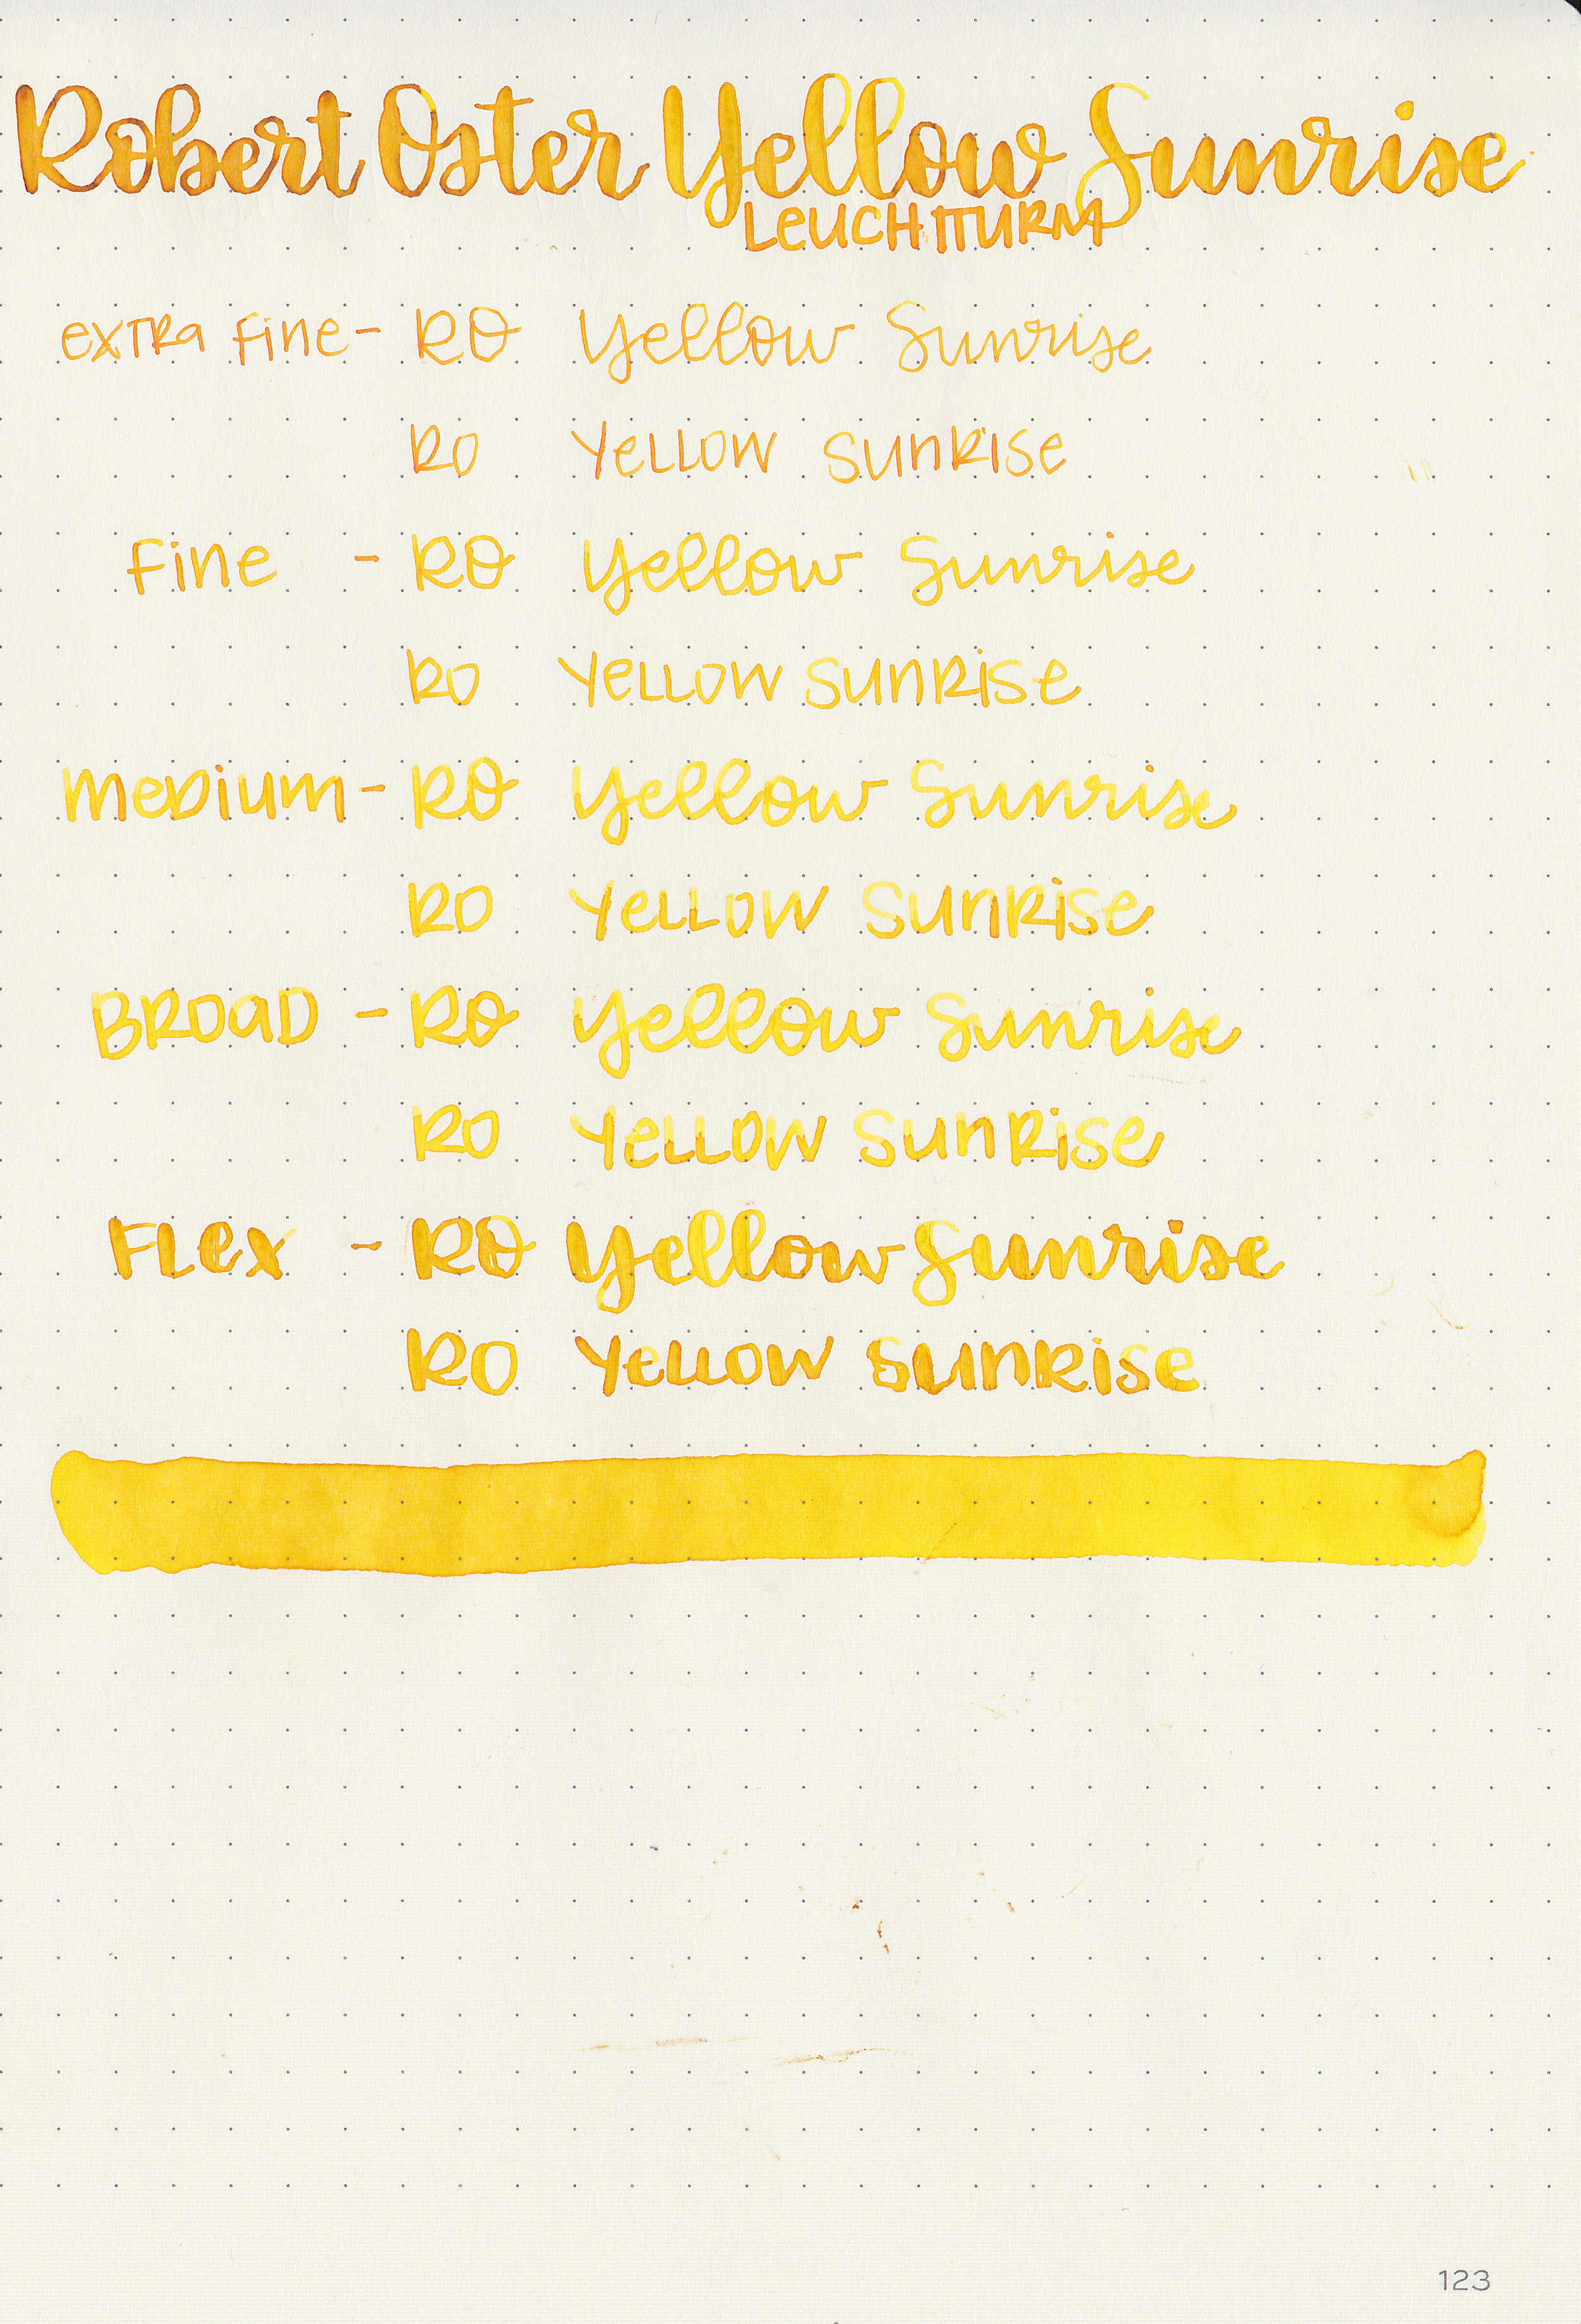 Robert Oster Yellow Sunrise
LEUCHTTURM
EXTRA FINE - RO Yellow Sunrise
RO YELLOW SUNRISE
FINE - RO Yellow Sunrise
RO YELLOW SUNRISE
MEDIUM - RO Yellow Sunrise
RO YELLOW SUNRISE
BROAD - RO Yellow Sunrise
RO YELLOW SUNRISE
FLEX - RO Yellow Sunrise
RO YELLOW SUNRISE
123